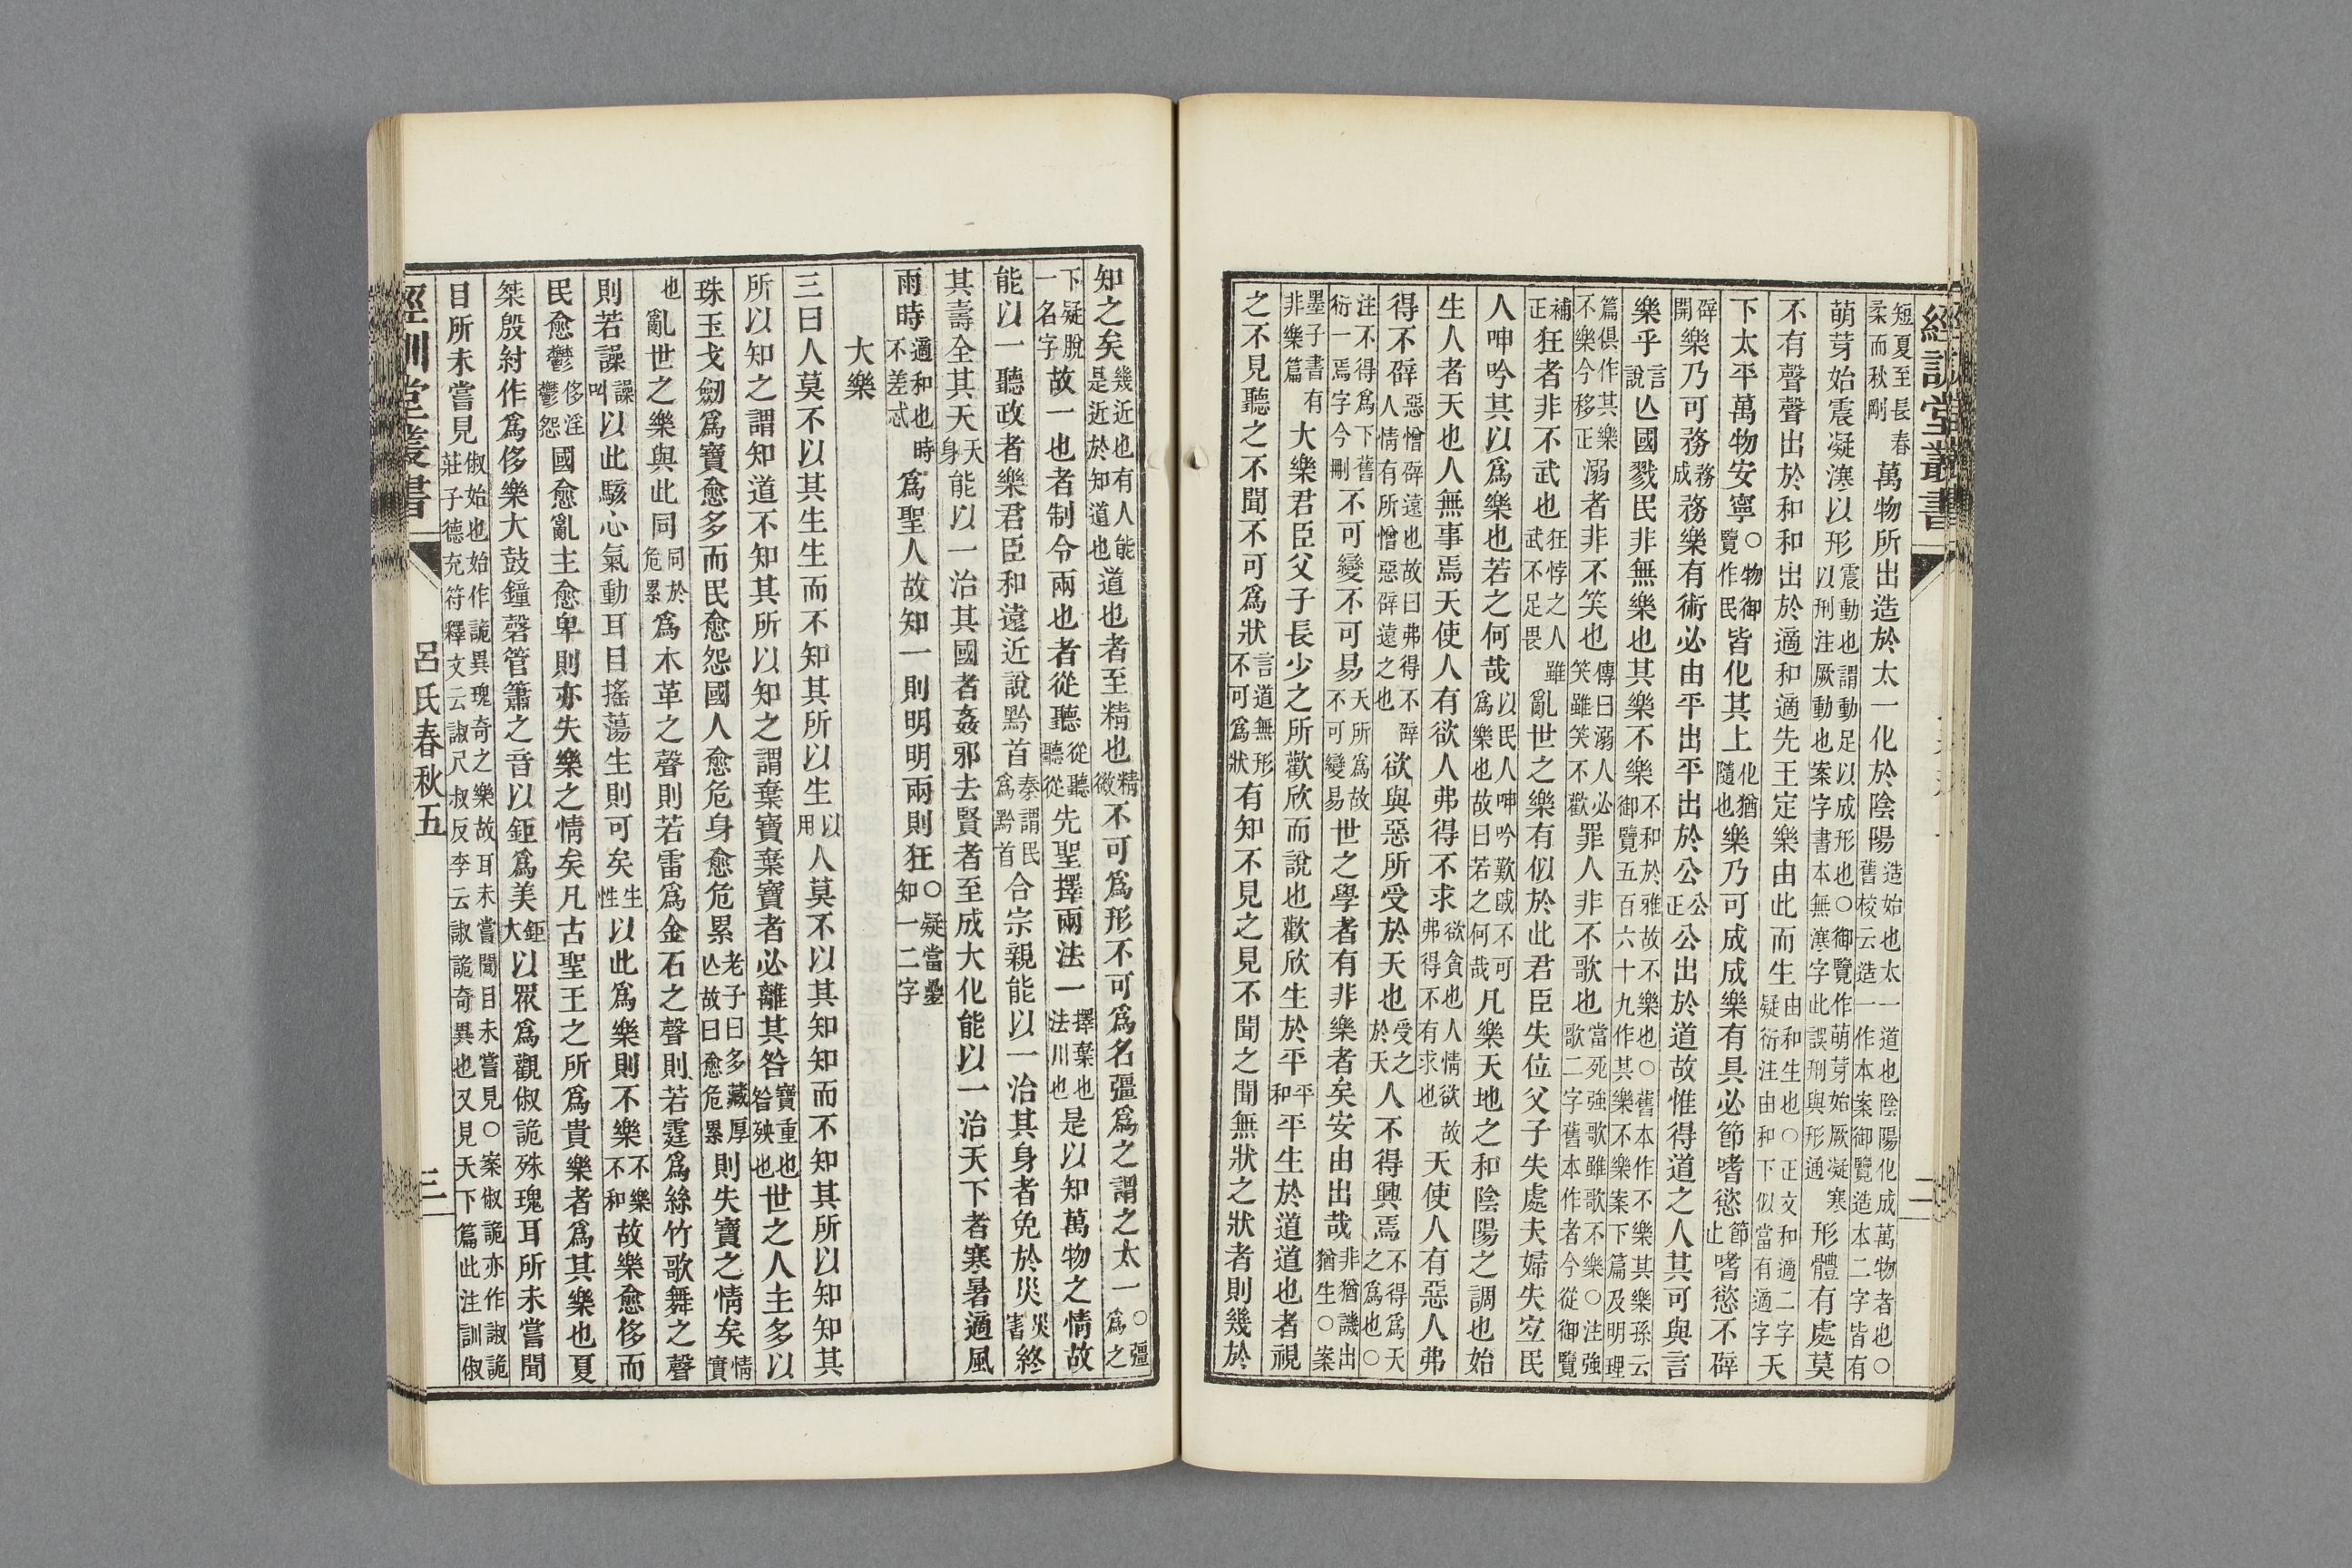 經訓堂叢書
二
短夏至長春柔而秋剛萬物所出造於太一化於陰陽造始也太一道也陰陽化成萬物者也○舊校云造一作本案御覽造本二字皆有
萌芽始震凝㴠以形震動也謂動足以成形也○御覽作萌芽始厥凝寒以刑注厥動也案字書本無㴠字此誤刑與形通形體有處莫
不有聲聲出於和和出於適和適先王定樂由此而生由和生也○正文和適二字疑衍注由和下似當有適字天
下太平萬物安寧○物御覽作民皆化其上化猶隨也樂乃可成成樂有具必節嗜慾節止嗜慾不辟
辟開樂乃可務務成務樂有術必由平出平出於公公正公出於道故惟得道之人其可與言
樂乎言說亾國戮民非無樂也其樂不樂不和於雅故不樂也○舊本作不樂其樂孫云御覽五百六十九作其樂不樂案下篇及明理
篇俱作其樂不樂今移正溺者非不笑也傳曰溺人必笑雖笑不歡罪人非不歌也當死強歌雖歌不樂○注強歌二字舊本作者今從御覽
補正狂者非不武也狂悖之人雖武不足畏亂世之樂有似於此君臣失位父子失處夫婦失宜民
人呻吟其以爲樂也若之何哉以民人呻吟歎戚不可爲樂也故曰若之何哉凡樂天地之和陰陽之調也始
生人者天也人無事焉天使人有欲人弗得不求欲貪也人情欲故弗得不有求也天使人有惡人弗
得不辟惡憎辟遠也故曰弗得不辟人情有所憎惡辟遠之也欲與惡所受於天也受之於天人不得興焉不得爲天之爲也○
注不得爲下舊衍一焉字今刪不可變不可易天所爲故不可變易世之學者有非樂者矣安由出哉非猶譏出猶生○案
墨子書有非樂篇大樂君臣父子長少之所歡欣而說也歡欣生於平平和平生於道道也者視
之不見聽之不聞不可爲狀言道無形不可爲狀有知不見之見不聞之聞無狀之狀者則幾於
知之矣幾近也有人能是近於知道也道也者至精也精微不可爲形不可爲名彊爲之謂之太一○彊爲之
下疑脫一名字故一也者制令兩也者從聽從聽聽從先聖擇兩法一擇棄也法用也是以知萬物之情故
能以一聽政者樂君臣和遠近說黔首秦謂民爲黔首合宗親能以一治其身者免於災災害終
其壽全其天天身能以一治其國者姦邪去賢者至成大化能以一治天下者寒暑適風
雨時適和也時不差忒爲聖人故知一則明明兩則狂○疑當疊知一二字
大樂
三曰人莫不以其生生而不知其所以生以用人莫不以其知知而不知其所以知知其
所以知之謂知道不知其所以知之謂棄寶棄寶者必離其咎寶重也咎殃也世之人主多以
珠玉戈劒爲寶愈多而民愈怨國人愈危身愈危累老子曰多藏厚亾故曰愈危累則失寶之情矣情實
也亂世之樂與此同同於危累爲木革之聲則若雷爲金石之聲則若霆爲絲竹歌舞之聲
則若譟譟叫以此駭心氣動耳目搖蕩生則可矣生性以此爲樂則不樂不樂不和故樂愈侈而
民愈鬱侈淫鬱怨國愈亂主愈卑則亦失樂之情矣凡古聖王之所爲貴樂者爲其樂也夏
桀殷紂作爲侈樂大鼓鐘磬管簫之音以鉅爲美鉅大以眾爲觀俶詭殊瑰耳所未嘗聞
目所未嘗見俶始也始作詭異瑰奇之樂故耳未嘗聞目未嘗見○案俶詭亦作諔詭莊子德充符釋文云諔尺叔反李云諔詭奇異也又見天下篇此注訓俶
經訓堂叢書
呂氏春秋五
三